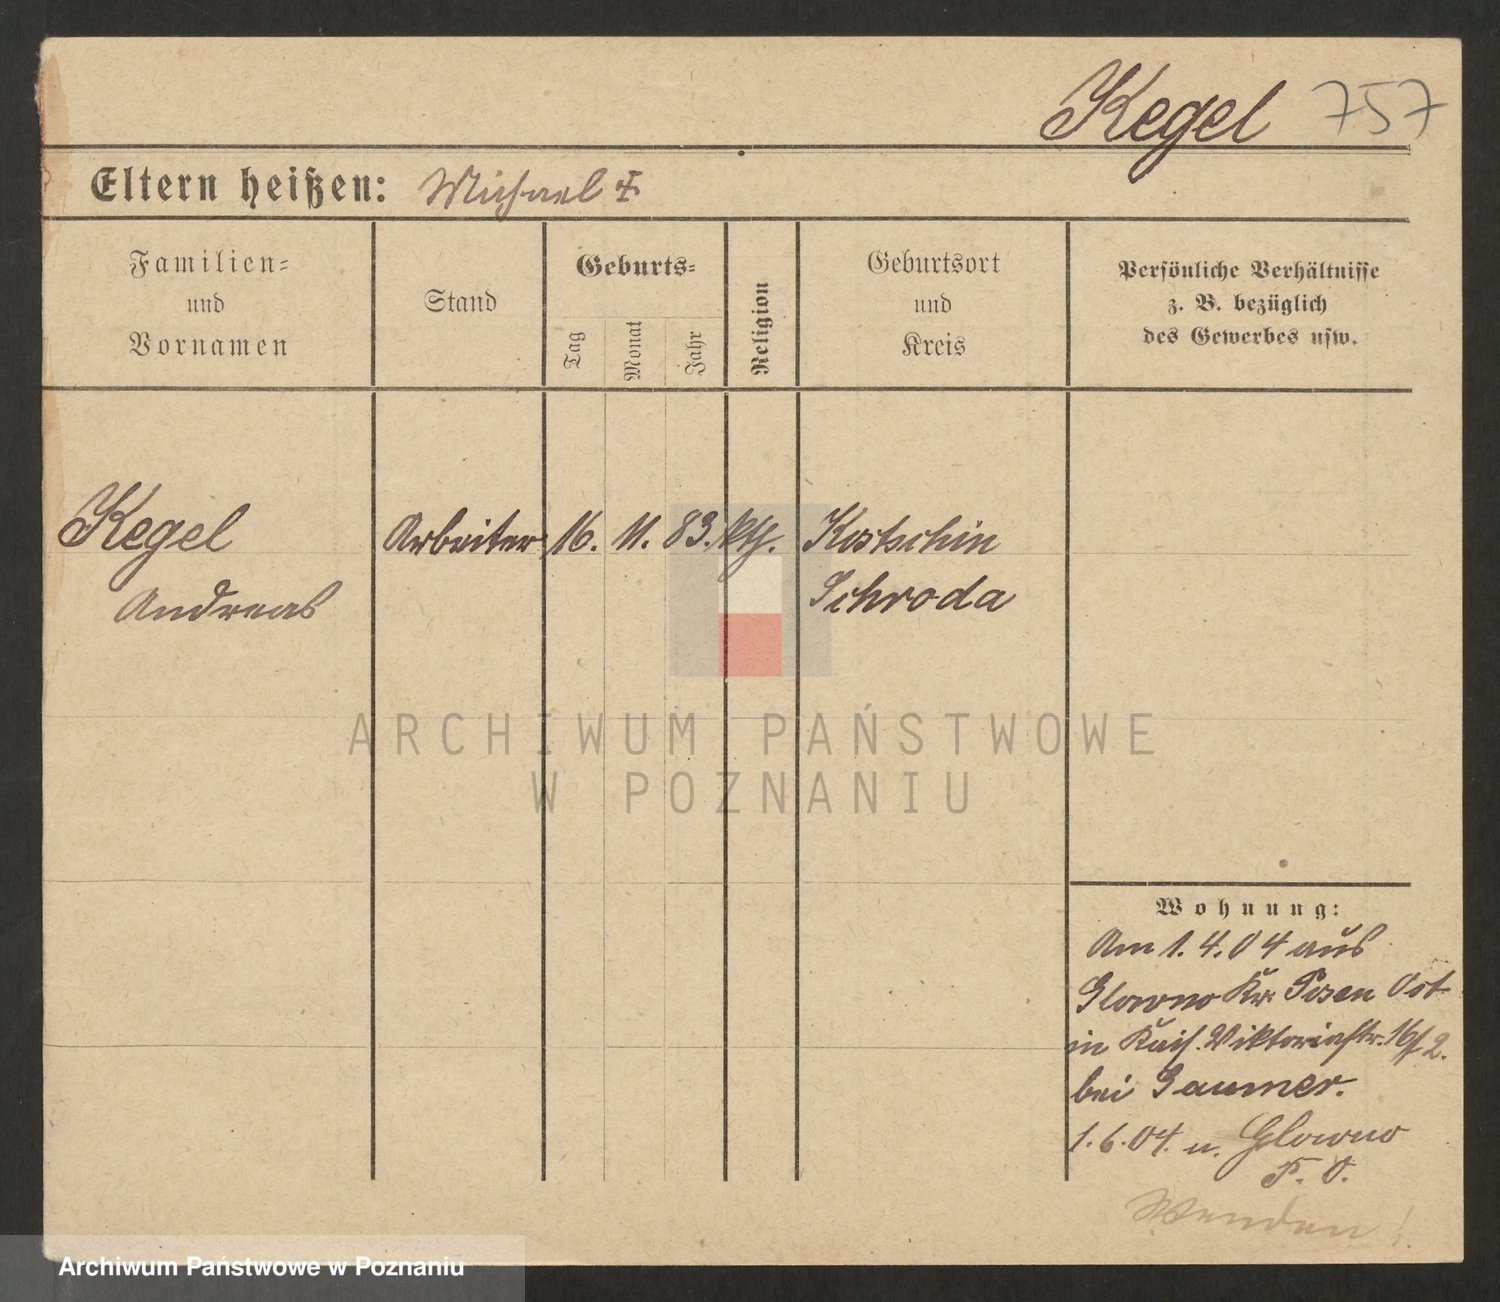 Kegel 757
Eltern heißen: Michael ‡
Familien=
und
Vornamen
Stand
Geburts=
Tag
Monat
Jahr
Religion
Geburtsort
und
Kreis
Persönliche Verhältnisse
z. B. bezüglich
des Gewerbes usw.
Kegel
Andreas
Arbeiter
16. 11. 83. kth.
Kostschin
Schroda
ARCHIWUM PAŃSTWOWE
W POZNANIU
Wohnung:
Am 1. 4. 04 aus
Glowno Kr. Posen Ost
in Kais. Viktoriastr. 16/2.
bei Gaumer.
1. 6. 04. n. Glowno
P. O.
Wenden!
Archiwum Państwowe w Poznaniu